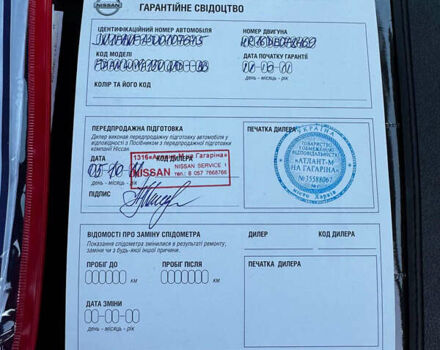 NISSAN
ГАРАНТІЙНЕ СВІДОЦТВО
ІДЕНТИФІКАЦІЙНИЙ НОМЕР АВТОМОБІЛЯ
НОМЕР ДВИГУНА
КОД МОДЕЛІ
ДАТА ПОЧАТКУ ГАРАНТІЇ
день - місяць - рік
КОЛІР ТА ЙОГО КОД
ПЕРЕДПРОДАЖНА ПІДГОТОВКА
ПЕЧАТКА ДИЛЕРА
Дилер виконав передпродажну підготовку автомобіля у
відповідності з Посібником з передпродажної підготовки
компанії Ніссан.
ДАТА
КОД ДИЛЕРА
1316 «Атлант-М на Гагаріна»
NISSAN SERVICE
NISSAN
тел.: 8 057 7668766
день - місяць - рік
ПІДПИС
УКРАЇНА
ТОВАРИСТВО
З ОБМЕЖЕНОЮ
ВІДПОВІДАЛЬНІСТЮ
«АТЛАНТ-М
НА ГАГАРІНА»
№ 35588067
місто Харків
ВІДОМОСТІ ПРО ЗАМІНУ СПІДОМЕТРА
Показання спідометра змінилися в результаті ремонту,
заміни чи з будь-якої іншої причини.
ДИЛЕР
КОД ДИЛЕРА
ПРОБІГ ДО
ПРОБІГ ПІСЛЯ
ПЕЧАТКА ДИЛЕРА
000000 км
000000 км
ДАТА ЗМІНИ
00-00-00
день - місяць - рік